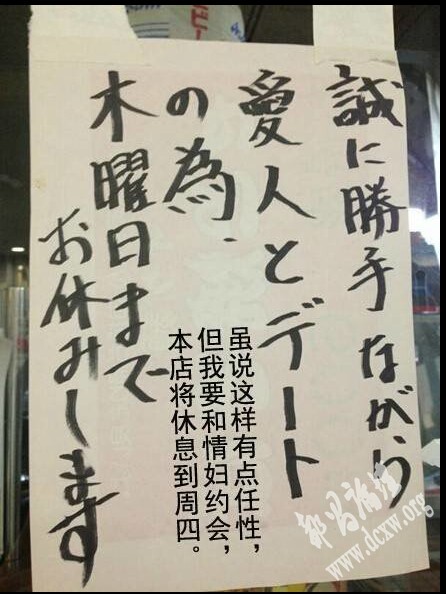 誠に勝手ながら
愛人とデート
の為、
木曜日まで
お休みします
虽说这样有点任性，
但我要和情妇约会，
本店将休息到周四。
www.dcxw.org